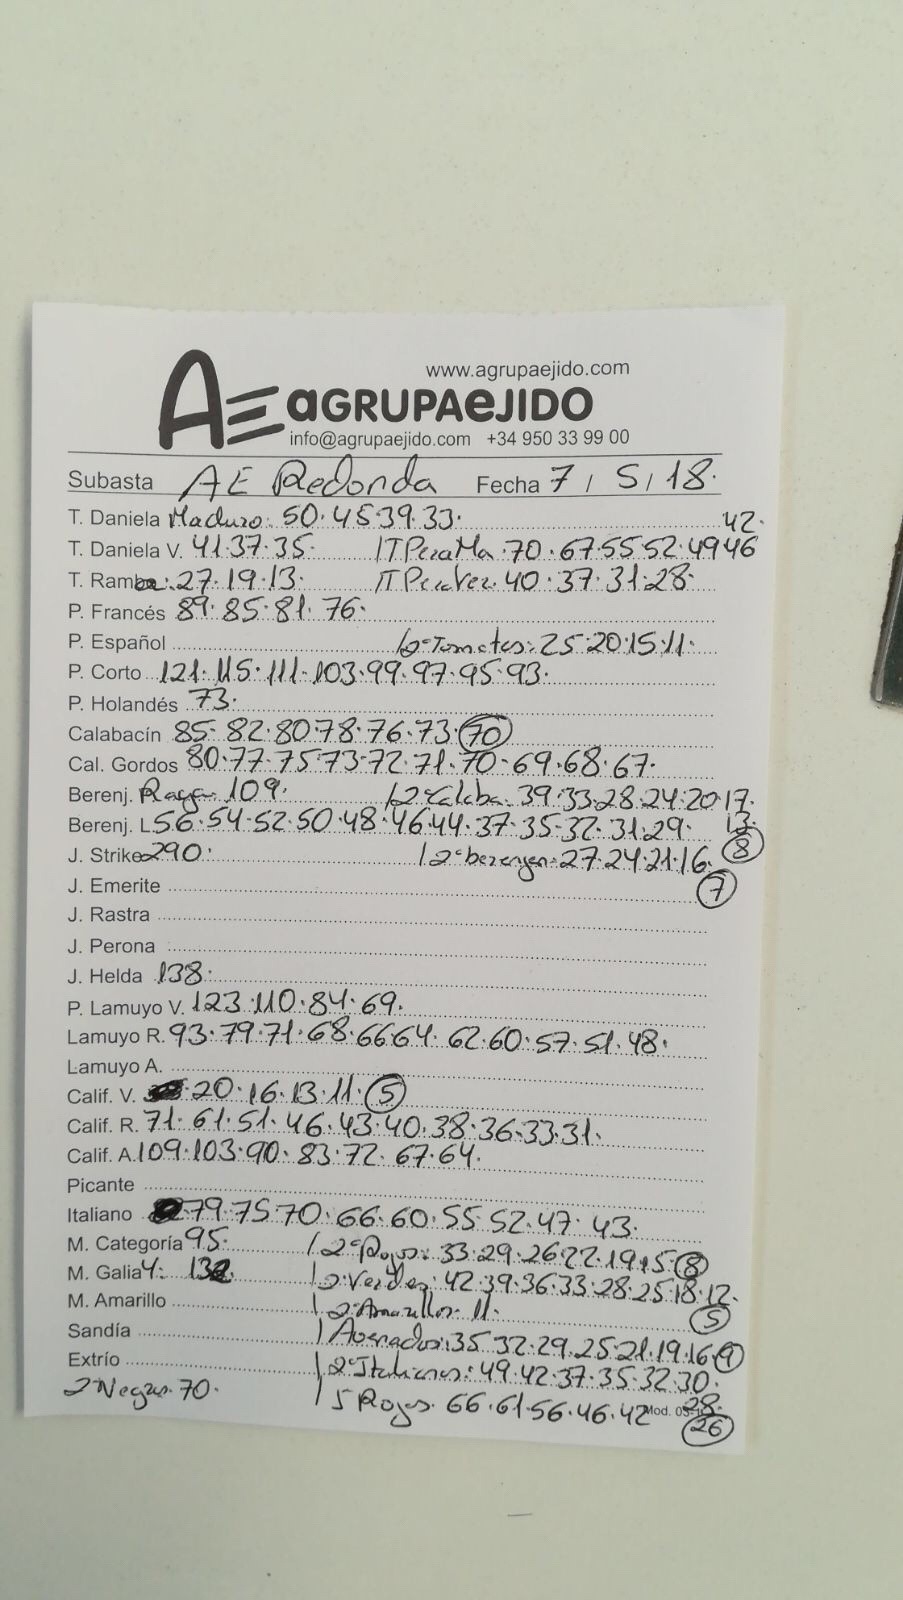 www.agrupaejido.com
AE aGRUPAeJIDO
info@agrupaejido.com +34 950 33 99 00
Subasta AE Redonda Fecha 7 / 5 / 18.
T. Daniela Maduro: 50.45.39.33. 42.
T. Daniela V. 41.37.35. / T Pera Ma: 70.67.55.52.49.46
T. Rambo: 27.19.13. / T Pera Ver: 40.37.31.28.
P. Francés 89.85.81.76.
P. Español / 2ª Tomates: 25.20.15.11.
P. Corto 121.115.111.103.99.97.95.93.
P. Holandés 73.
Calabacín 85.82.80.78.76.73.70
Cal. Gordos 80.77.75.73.72.71.70.69.68.67.
Berenj. Raya 109. / 2ª Calaba: 39.33.28.24.20.17.
Berenj. L 56.54.52.50.48.46.44.37.35.32.31.29. 13.
J. Strike 290. / 2ª berenjen: 27.24.21.16. 8
J. Emerite 7
J. Rastra
J. Perona
J. Helda 138.
P. Lamuyo V. 123.110.84.69.
Lamuyo R. 93.79.71.68.66.64.62.60.57.51.48.
Lamuyo A.
Calif. V. 20.16.13.11.5
Calif. R. 71.61.51.46.43.40.38.36.33.31.
Calif. A. 109.103.90.83.72.67.64.
Picante
Italiano 79.75.70.66.60.55.52.47.43.
M. Categoría 95. / 2ª Rojos: 33.29.26.22.19.15.8
M. Galia 4: 132. / 2ª Verdes: 42.39.36.33.28.25.18.12.
M. Amarillo / 2ª Amarillos: 11. 5
Sandía / Asurados: 35.32.29.25.21.19.16.9
Extrío / 2ª Italianos: 49.42.37.35.32.30.
2ª Negras 70. / 5 Rojos. 66.61.56.46.42 28.
26